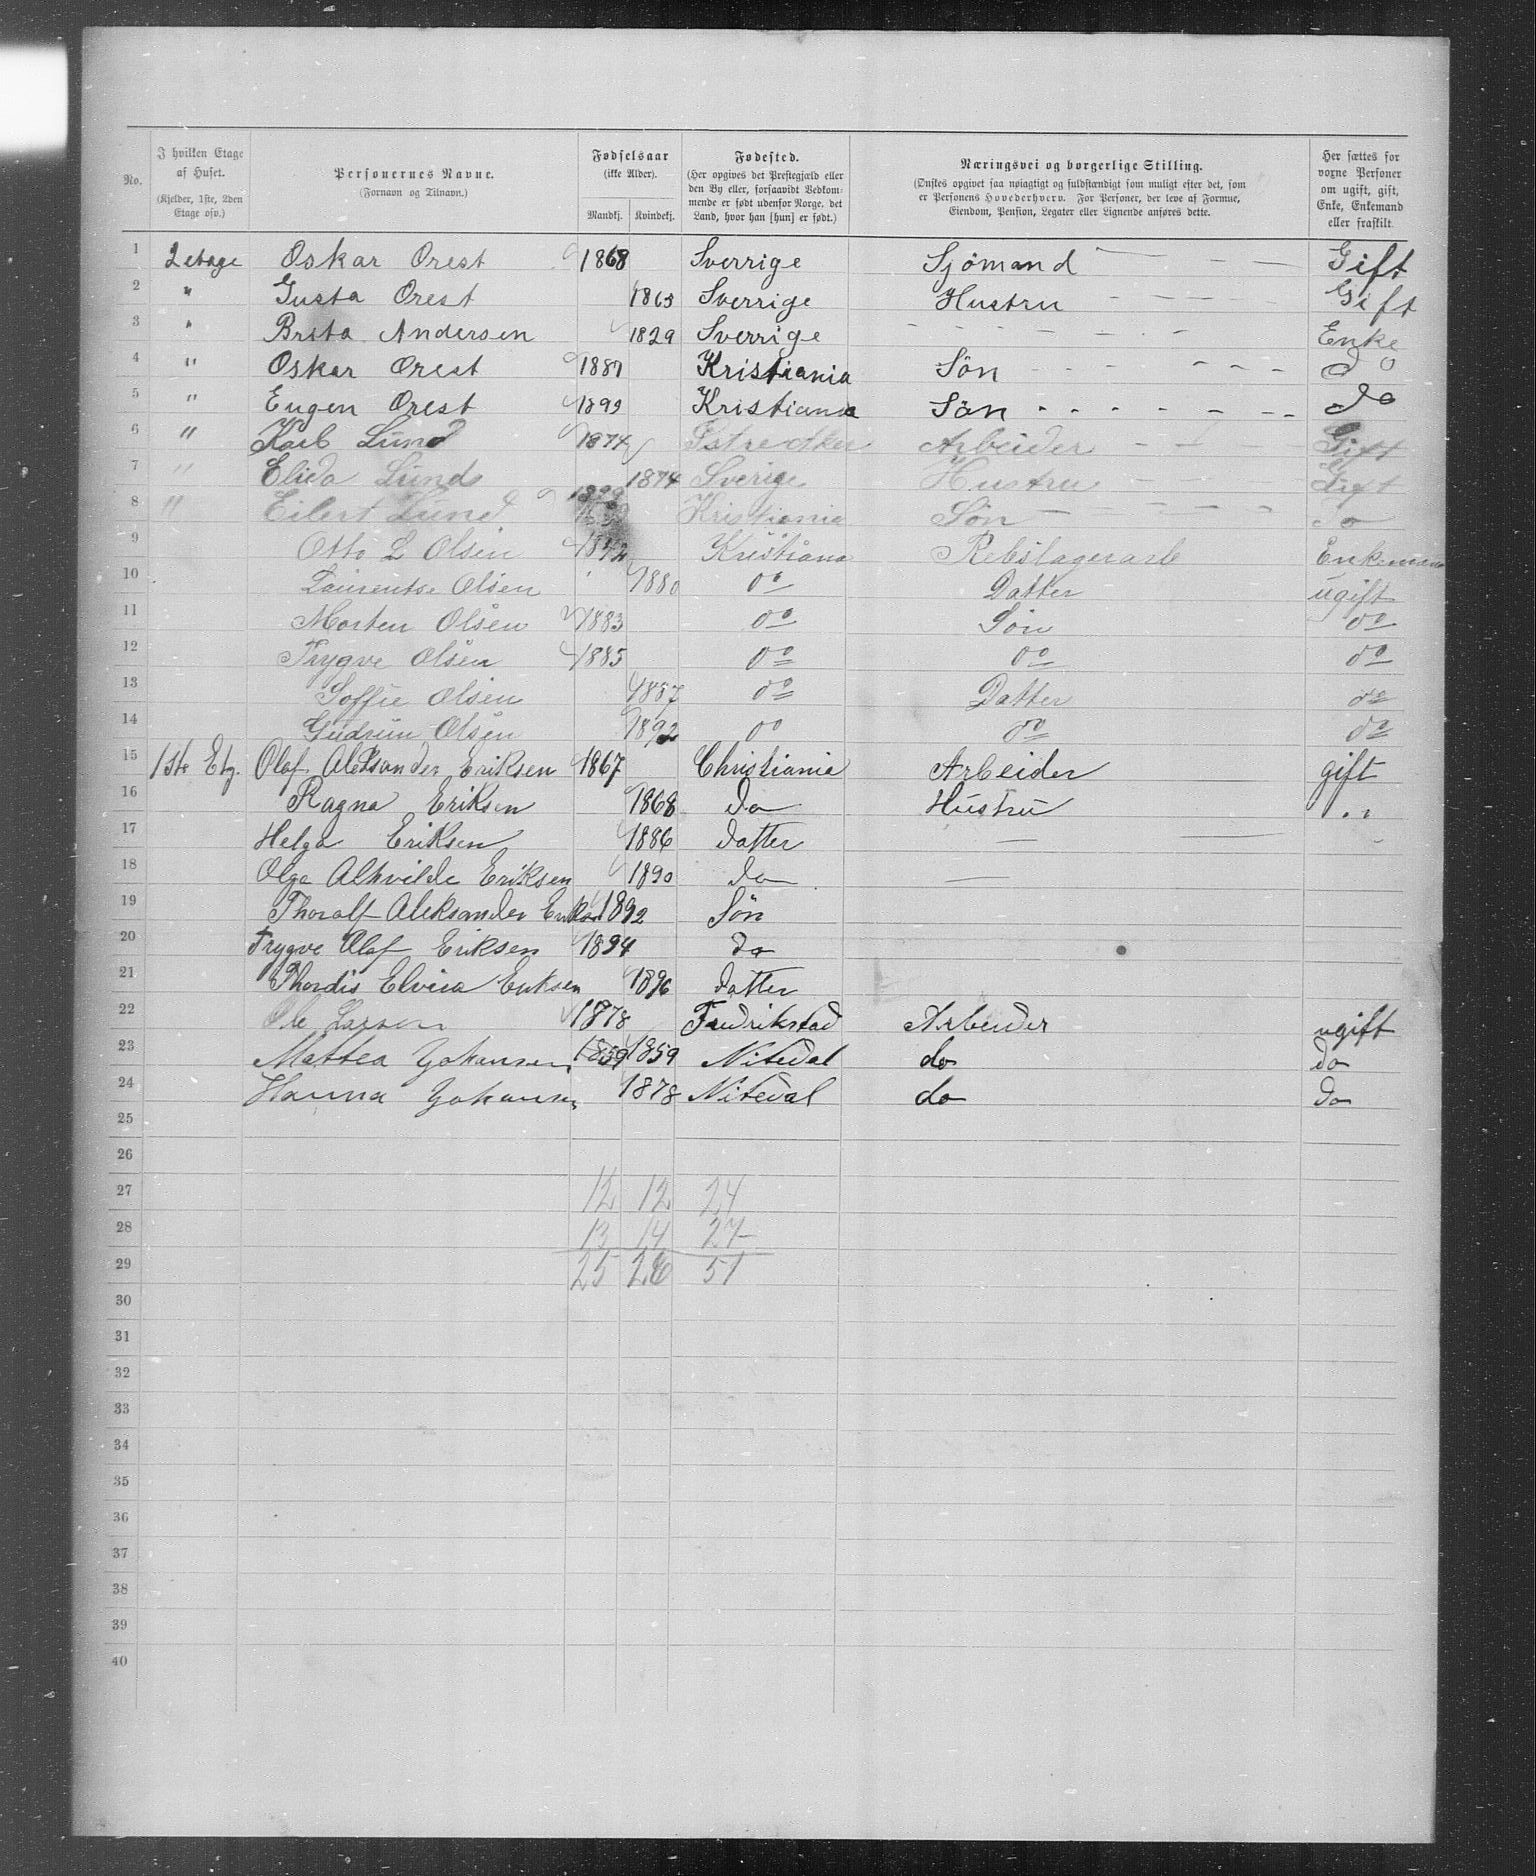 No. I hvilken Etage af Huset. (Kjelder, 1ste, 2den Etage osv.) Personernes Navne. (Fornavn og Tilnavn.) Fødselsaar (ikke Alder). Mandkj. Kvindekj. Fødested. (Her opgives det Prestegjæld eller den By eller, forsaavidt Vedkommende er født udenfor Norge, det Land, hvor han [hun] er født.) Næringsvei og borgerlige Stilling. (Ønskes opgivet saa nøiagtigt og fuldstændigt som muligt efter det, som er Personens Hovederhverv. For Personer, der leve af Formue, Eiendom, Pension, Legater eller Lignende anføres dette. Her sættes for voxne Personer om ugift, gift, Enke, Enkemand eller fraskilt.
1 2 etage Oskar Orest 1868 Sverrige Sjömand Gift
2 " Gusta Orest 1863 Sverrige Hustru Gift
3 " Brita Andersen 1829 Sverrige Enke
4 " Oskar Orest Kristiania Sön do
5 " Eugen Orest 1899 Kristiania Sön do
6 " Karl Lund 1874 Østre Aker Arbeider Gift
7 " Elida Lund 1874 Sverige Hustru Gift
8 " Eilert Lund 1899 Kristiania Sön do
9 Otto L Olsen 1842 Kristiana Rebslagerarb Enkemand
10 Laurentse Olsen 1880 do Datter ugift
11 Morten Olsen 1883 do Sön do
12 Trygve Olsen 1885 do do do
13 Soffie Olsen 1887 do Datter do
14 Gudrun Olsen 1892 do do do
15 1ste Etg. Olaf Aleksander Eriksen 1867 Christiania Arbeider gift
16 Ragna Eriksen 1868 do Hustru "
17 Helga Eriksen 1886 datter
18 Olga Alhvilde Eriksen 1890 do
19 Thoralf Aleksander Eriksen 1892 Sön
20 Trygve Olaf Eriksen 1894 do
21 Thordis Elvira Eriksen 1896 datter
22 Ole Larsen 1878 Fredrikstad Arbeider ugift
23 Mathea Johansen 1859 1859 Nitedal do do
24 Hanna Johansen 1878 Nitedal do do
25
26
27 12 12 24
28 13 14 27
29 25 26 51
30
31
32
33
34
35
36
37
38
39
40